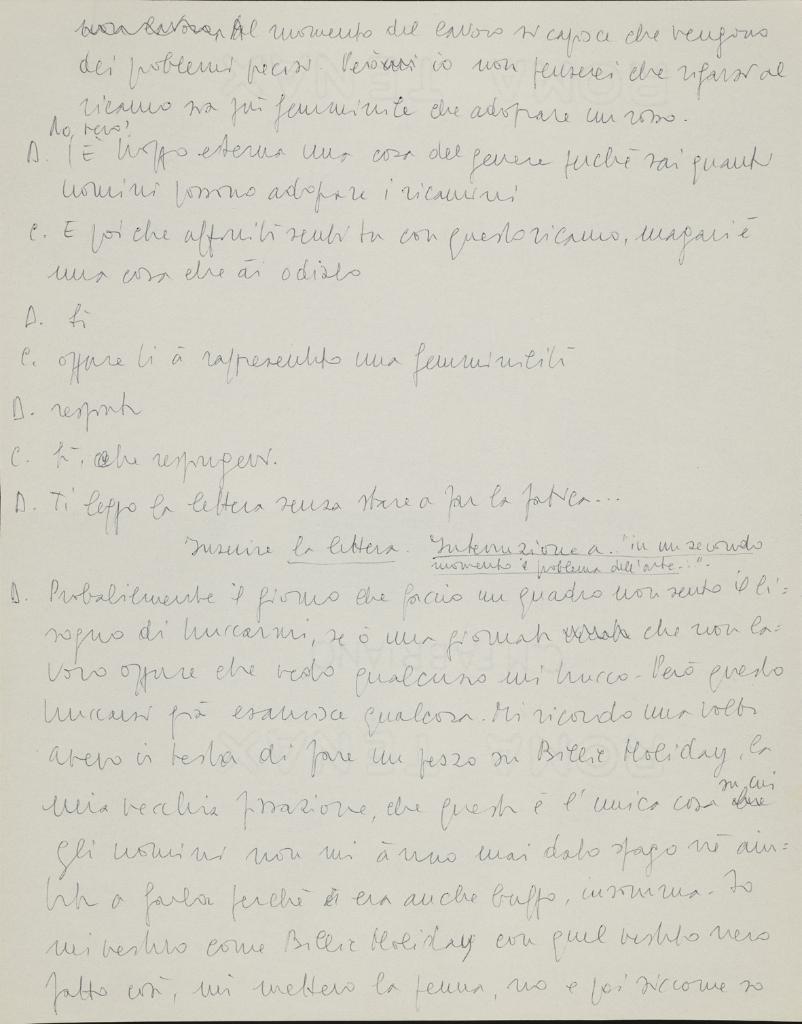 Al momento del lavoro si capisce che vengono
dei problemi precisi. Però io non penserei che rifarsi al
ricamo sia più femminile che adoprare un rosso.
No, vero?
D. È troppo esterna una cosa del genere perché sai quanti
uomini possono adoprare i ricamini
C. E poi che affinità senti tu con questo ricamo, magari è
una cosa che ài odiato
D. Sì
C. oppure ti à rappresentato una femminilità
D. respinta
C. Sì, che respingevi.
D. Ti leggo la lettera senza stare a far la fatica...
Inserire la lettera. Interruzione a "in un secondo
momento il problema dell'arte...".
D. Probabilmente il giorno che faccio un quadro non sento il bi=
sogno di truccarmi, se ò una giornata che non la=
voro oppure che vedo qualcuno mi trucco. Però questo
truccarsi già esaurisce qualcosa. Mi ricordo una volta
avevo in testa di fare un pezzo su Billie Holiday, la
mia vecchia fissazione, che questa è l'unica cosa su cui
gli uomini non mi ànno mai dato spago né aiu=
tato a farla perché era anche buffo, insomma. Io
mi vestivo come Billie Holiday con quel vestito nero
fatto così, mi mettevo la penna, no e poi siccome so